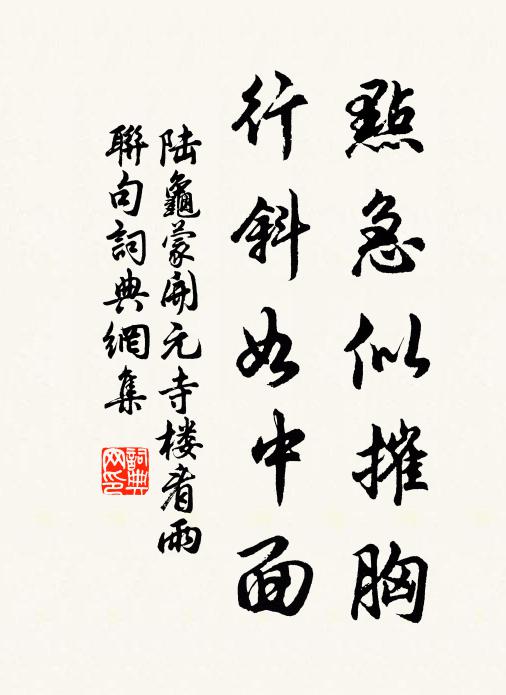 點急似摧胸
行斜如中面
陆龜蒙開元寺楼看雨
聯句詞典網集
詞典
网印